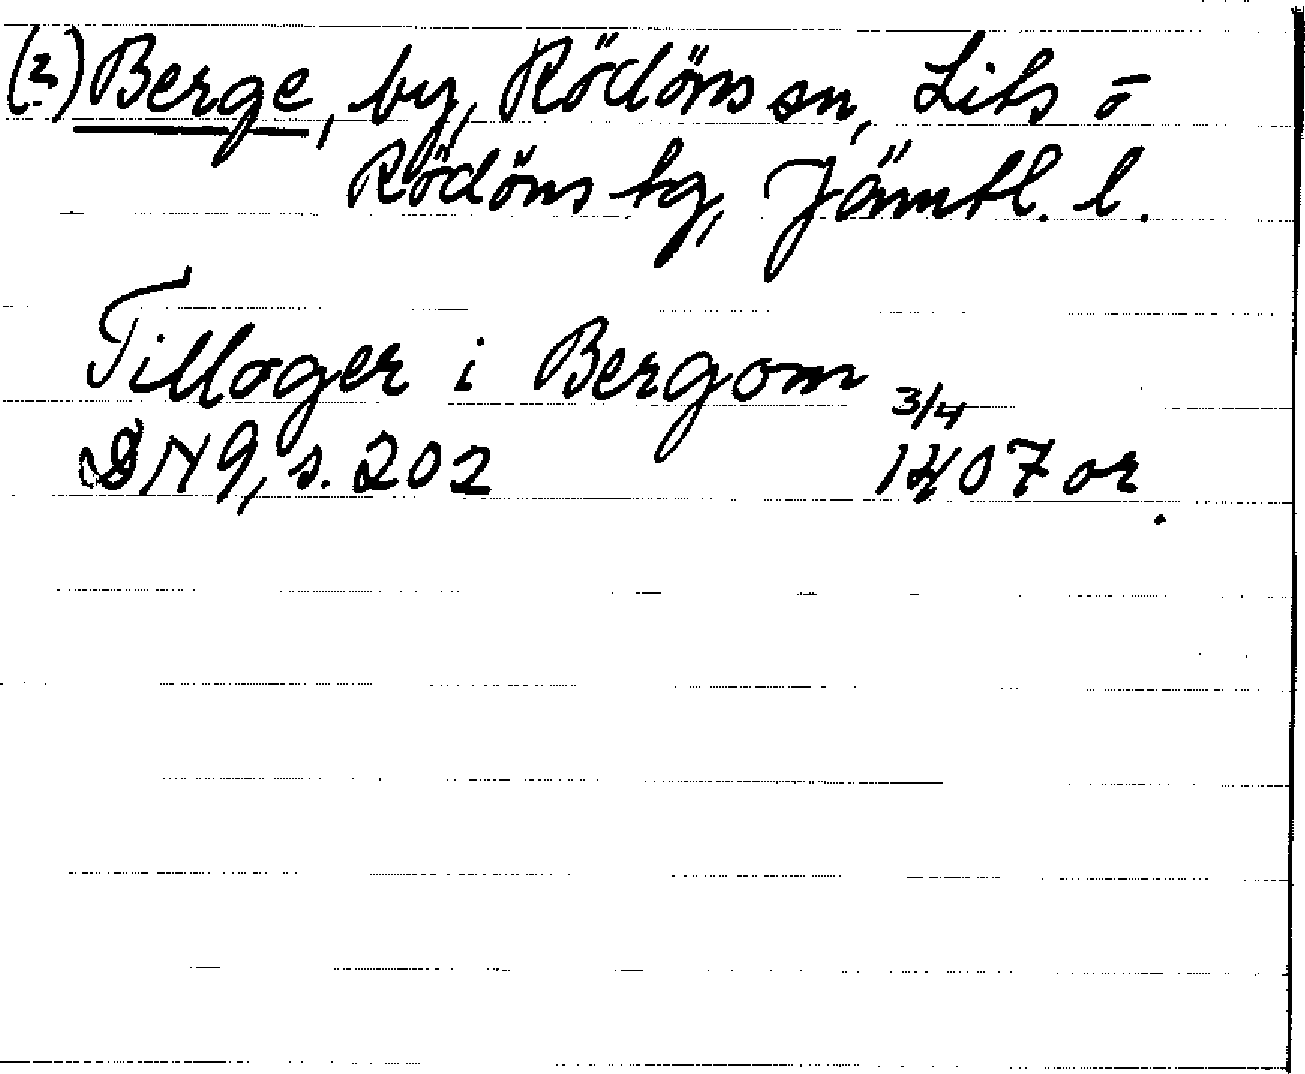 (2) Berge, by, Rödöns sn, Lits o
Rödöns tg, Jämtl. l.
Tilloger i Bergom
3/4
DN 9, s. 202 1407 or.